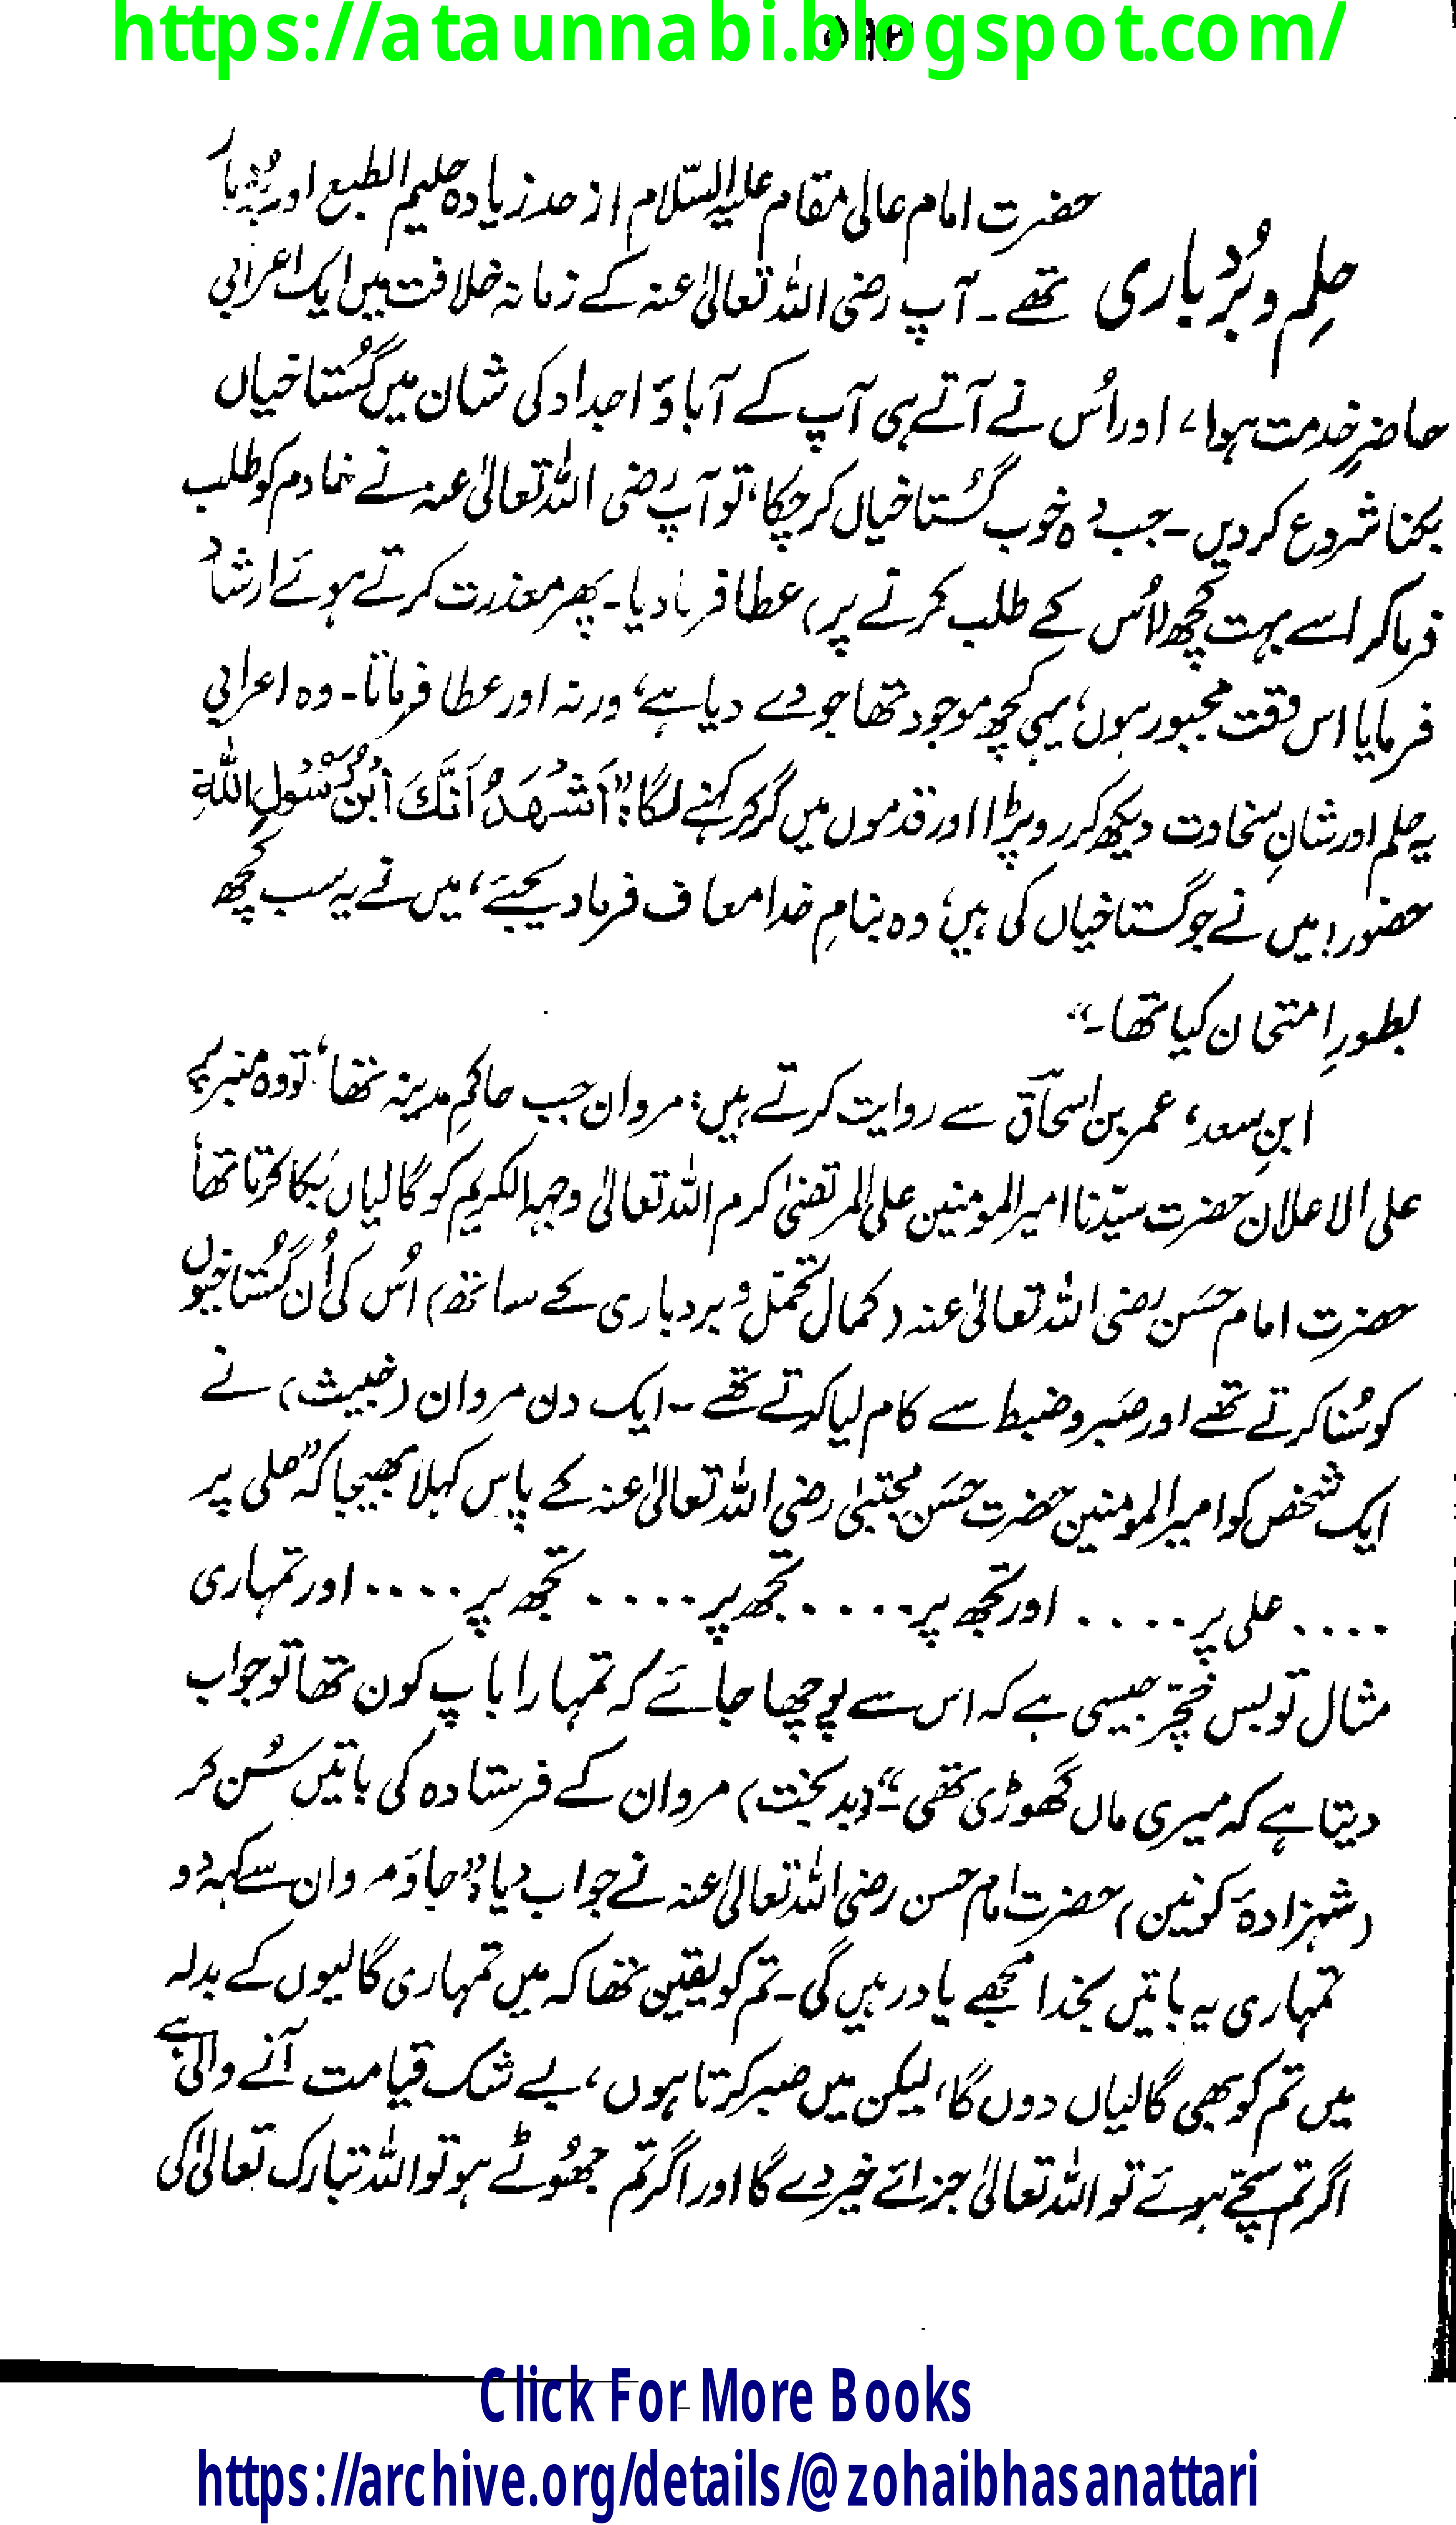 https://ataunnabi.blogspot.com/
حضرت امام عالی مقام علیہ السّلام از حد زیادہ حلیم الطبع اور بُردبار
حِلم و بُردباری
تھے۔ آپ رضی اللہ تعالیٰ عنہ کے زمانہ خلافت میں ایک اعرابی
حاضرِ خدمت ہوا، اور اُس نے آتے ہی آپ کے آباؤ اجداد کی شان میں گُستاخیاں
بکنا شروع کر دیں۔ جب وہ خوب گستاخیاں کر چکا، تو آپ رضی اللہ تعالیٰ عنہ نے خادم کو طلب
فرما کر اسے بہت کچھ (اُس کے طلب کرنے پر) عطا فرما دیا۔ پھر معذرت کرتے ہوئے ارشاد
فرمایا اس وقت مجبور ہوں، یہی کچھ موجود تھا جو دے دیا ہے، ورنہ اور عطا فرماتا۔ وہ اعرابی
یہ حلم اور شانِ سخاوت دیکھ کر رو پڑا اور قدموں میں گر کر کہنے لگا: ”اَشْهَدُ اَنَّكَ ابْنُ رَسُولِ اللّٰهِ
حضور! میں نے جو گستاخیاں کی ہیں، وہ بنامِ خدا معاف فرما دیجئے، میں نے یہ سب کچھ
بطورِ امتحان کیا تھا۔“
ابنِ سعد، عمر بن اسحاق سے روایت کرتے ہیں: مروان جب حاکمِ مدینہ تھا، تو وہ منبر پر
علی الاعلان حضرت سیّدنا امیر المومنین علی المرتضیٰ کرم اللہ تعالیٰ وجہہ الکریم کو گالیاں بَکا کرتا تھا
حضرت امام حَسَن رضی اللہ تعالیٰ عنہ (کمال تحمّل و بردباری کے ساتھ) اُس کی اُن گُستاخیوں
کو سُنا کرتے تھے اور صَبر و ضبط سے کام لیا کرتے تھے۔ ایک دن مروان (خبیث) نے
ایک شخص کو امیر المومنین حضرت حَسَن مجتبیٰ رضی اللہ تعالیٰ عنہ کے پاس کہلا بھیجا کہ ”علی پر
.... علی پر .... اور تجھ پر .... تجھ پر .... تجھ پر .... اور تمہاری
مثال تو بس خچّر جیسی ہے کہ اس سے پوچھا جائے کہ تمہارا باپ کون تھا تو جواب
دیتا ہے کہ میری ماں گھوڑی تھی۔“ (بدبخت) مروان کے فرستادہ کی باتیں سُن کر
(شہزادۂ کونین) حضرت امام حسن رضی اللہ تعالیٰ عنہ نے جواب دیا: ”جاؤ مروان سے کہہ دو
تمہاری یہ باتیں بخدا مجھے یاد رہیں گی۔ تم کو یقین تھا کہ میں تمہاری گالیوں کے بدلہ
میں تم کو بھی گالیاں دوں گا، لیکن میں صبر کرتا ہوں، بے شک قیامت آنے والی ہے
اگر تم سچّے ہوئے تو اللہ تعالیٰ جزائے خیر دے گا اور اگر تم جھُوٹے ہو تو اللہ تبارک تعالیٰ کی
Click For More Books
https://archive.org/details/@zohaibhasanattari